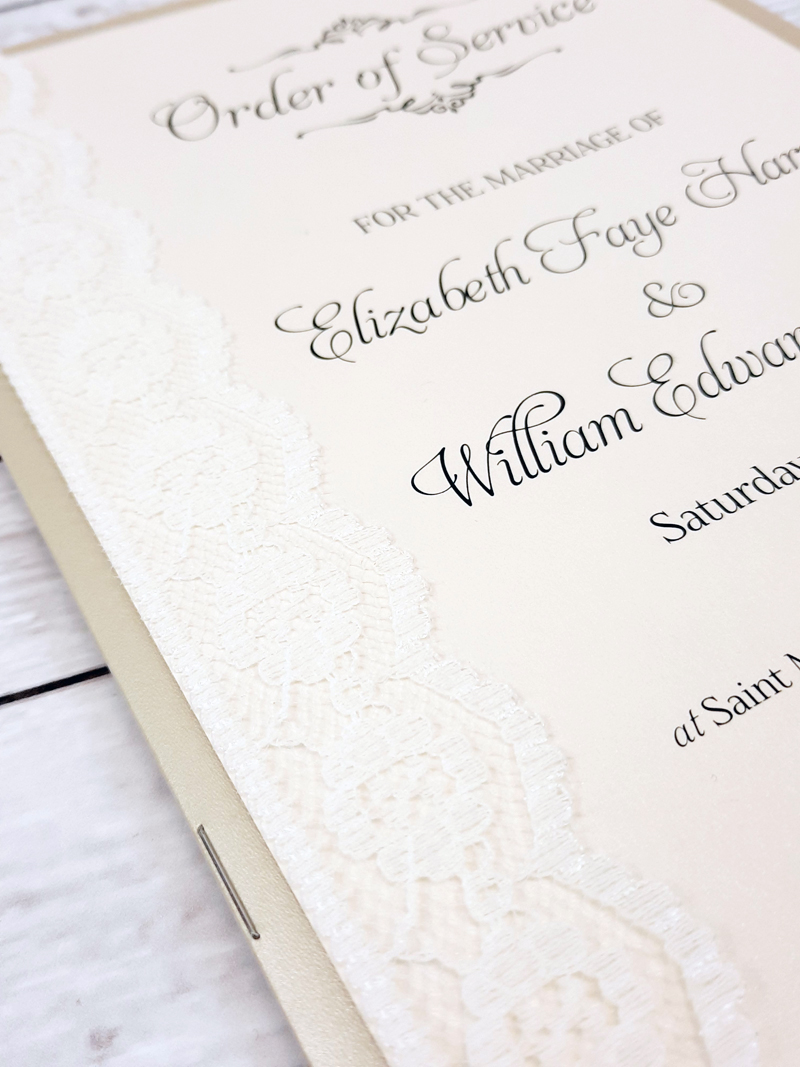 Order of Service
FOR THE MARRIAGE OF
Elizabeth Faye Har
&
William Edwar
Saturday
at Saint